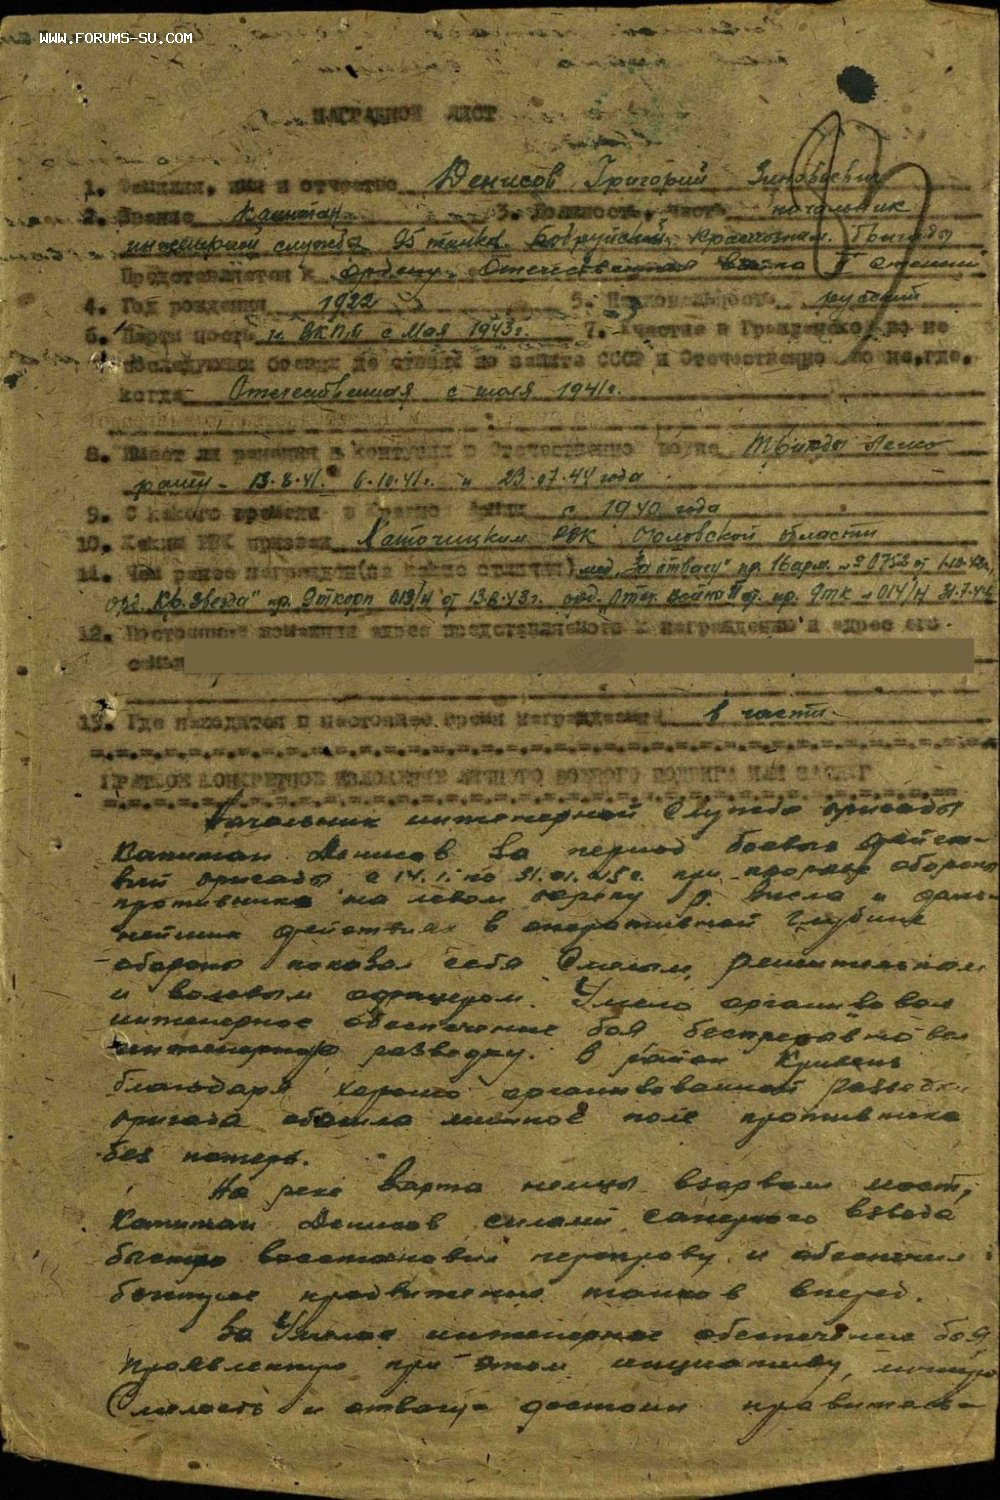 WWW.FORUMS-SU.COM
НАГРАДНОЙ ЛИСТ
1. Фамилия, имя и отчество Денисов Григорий Зиновьевич
2. Звание Капитан 3. Должность, часть начальник
инженерной службы 95 танков. Бобруйской, Краснознам. бригады
Представляется к ордену Отечественная война II степени
4. Год рождения 1922 5. Национальность русский
6. Партийность ВКП/б с Мая 1943г. 7. Участие в Гражданской войне
последующих боевых действиях по защите СССР и Отечественной войне, где,
когда Отечественная с июля 1941г.
8. Имеет ли ранения и контузии в Отечественной войне Трижды легко
ранен - 13.8.41г. 6.10.41г. и 23.07.44 года
9. С какого времени в Красной Армии с 1940 года
10. Каким РВК призван РВК Орловской области
11. Чем ранее награжден (за какие отличия) мед. "За отвагу" пр. 16 арм. № 0752 от
орд. "Кр. Звезда" пр. 9 от 13.8.43г. орд. "Отеч. война II ст." пр. 9 тк № 014/н 31.7.44
12. Постоянный домашний адрес представляемого к награждению и адрес его
семьи
13. Где находится в настоящее время награждаемый в части.
КРАТКОЕ КОНКРЕТНОЕ ИЗЛОЖЕНИЕ ЛИЧНОГО БОЕВОГО ПОДВИГА ИЛИ ЗАСЛУГ
Начальник инженерной Службы бригады
Капитан Денисов за период боевых дейст-
вий бригады с 14.1. по 31.01.45г. при прорыве обороны
противника на левом берегу р. Висла и даль-
нейших действиях в оперативной глубине
обороны показал себя Смелым, решительным
и волевым офицером. Умело организовал
инженерное обеспечение боя беспрерывно вел
инженерную разведку. В районе
благодаря хорошо организованной разведки
бригада обошла минное поле противника
без потерь.
На реке Варта немцы взорвали мост,
Капитан Денисов силами саперного взвода
быстро восстановил переправу и обеспечил
быстрое продвижение танков вперед.
За Умелое инженерное обеспечение боя
проявленную при этом инициативу,
Смелость и отвагу достоин правительс-